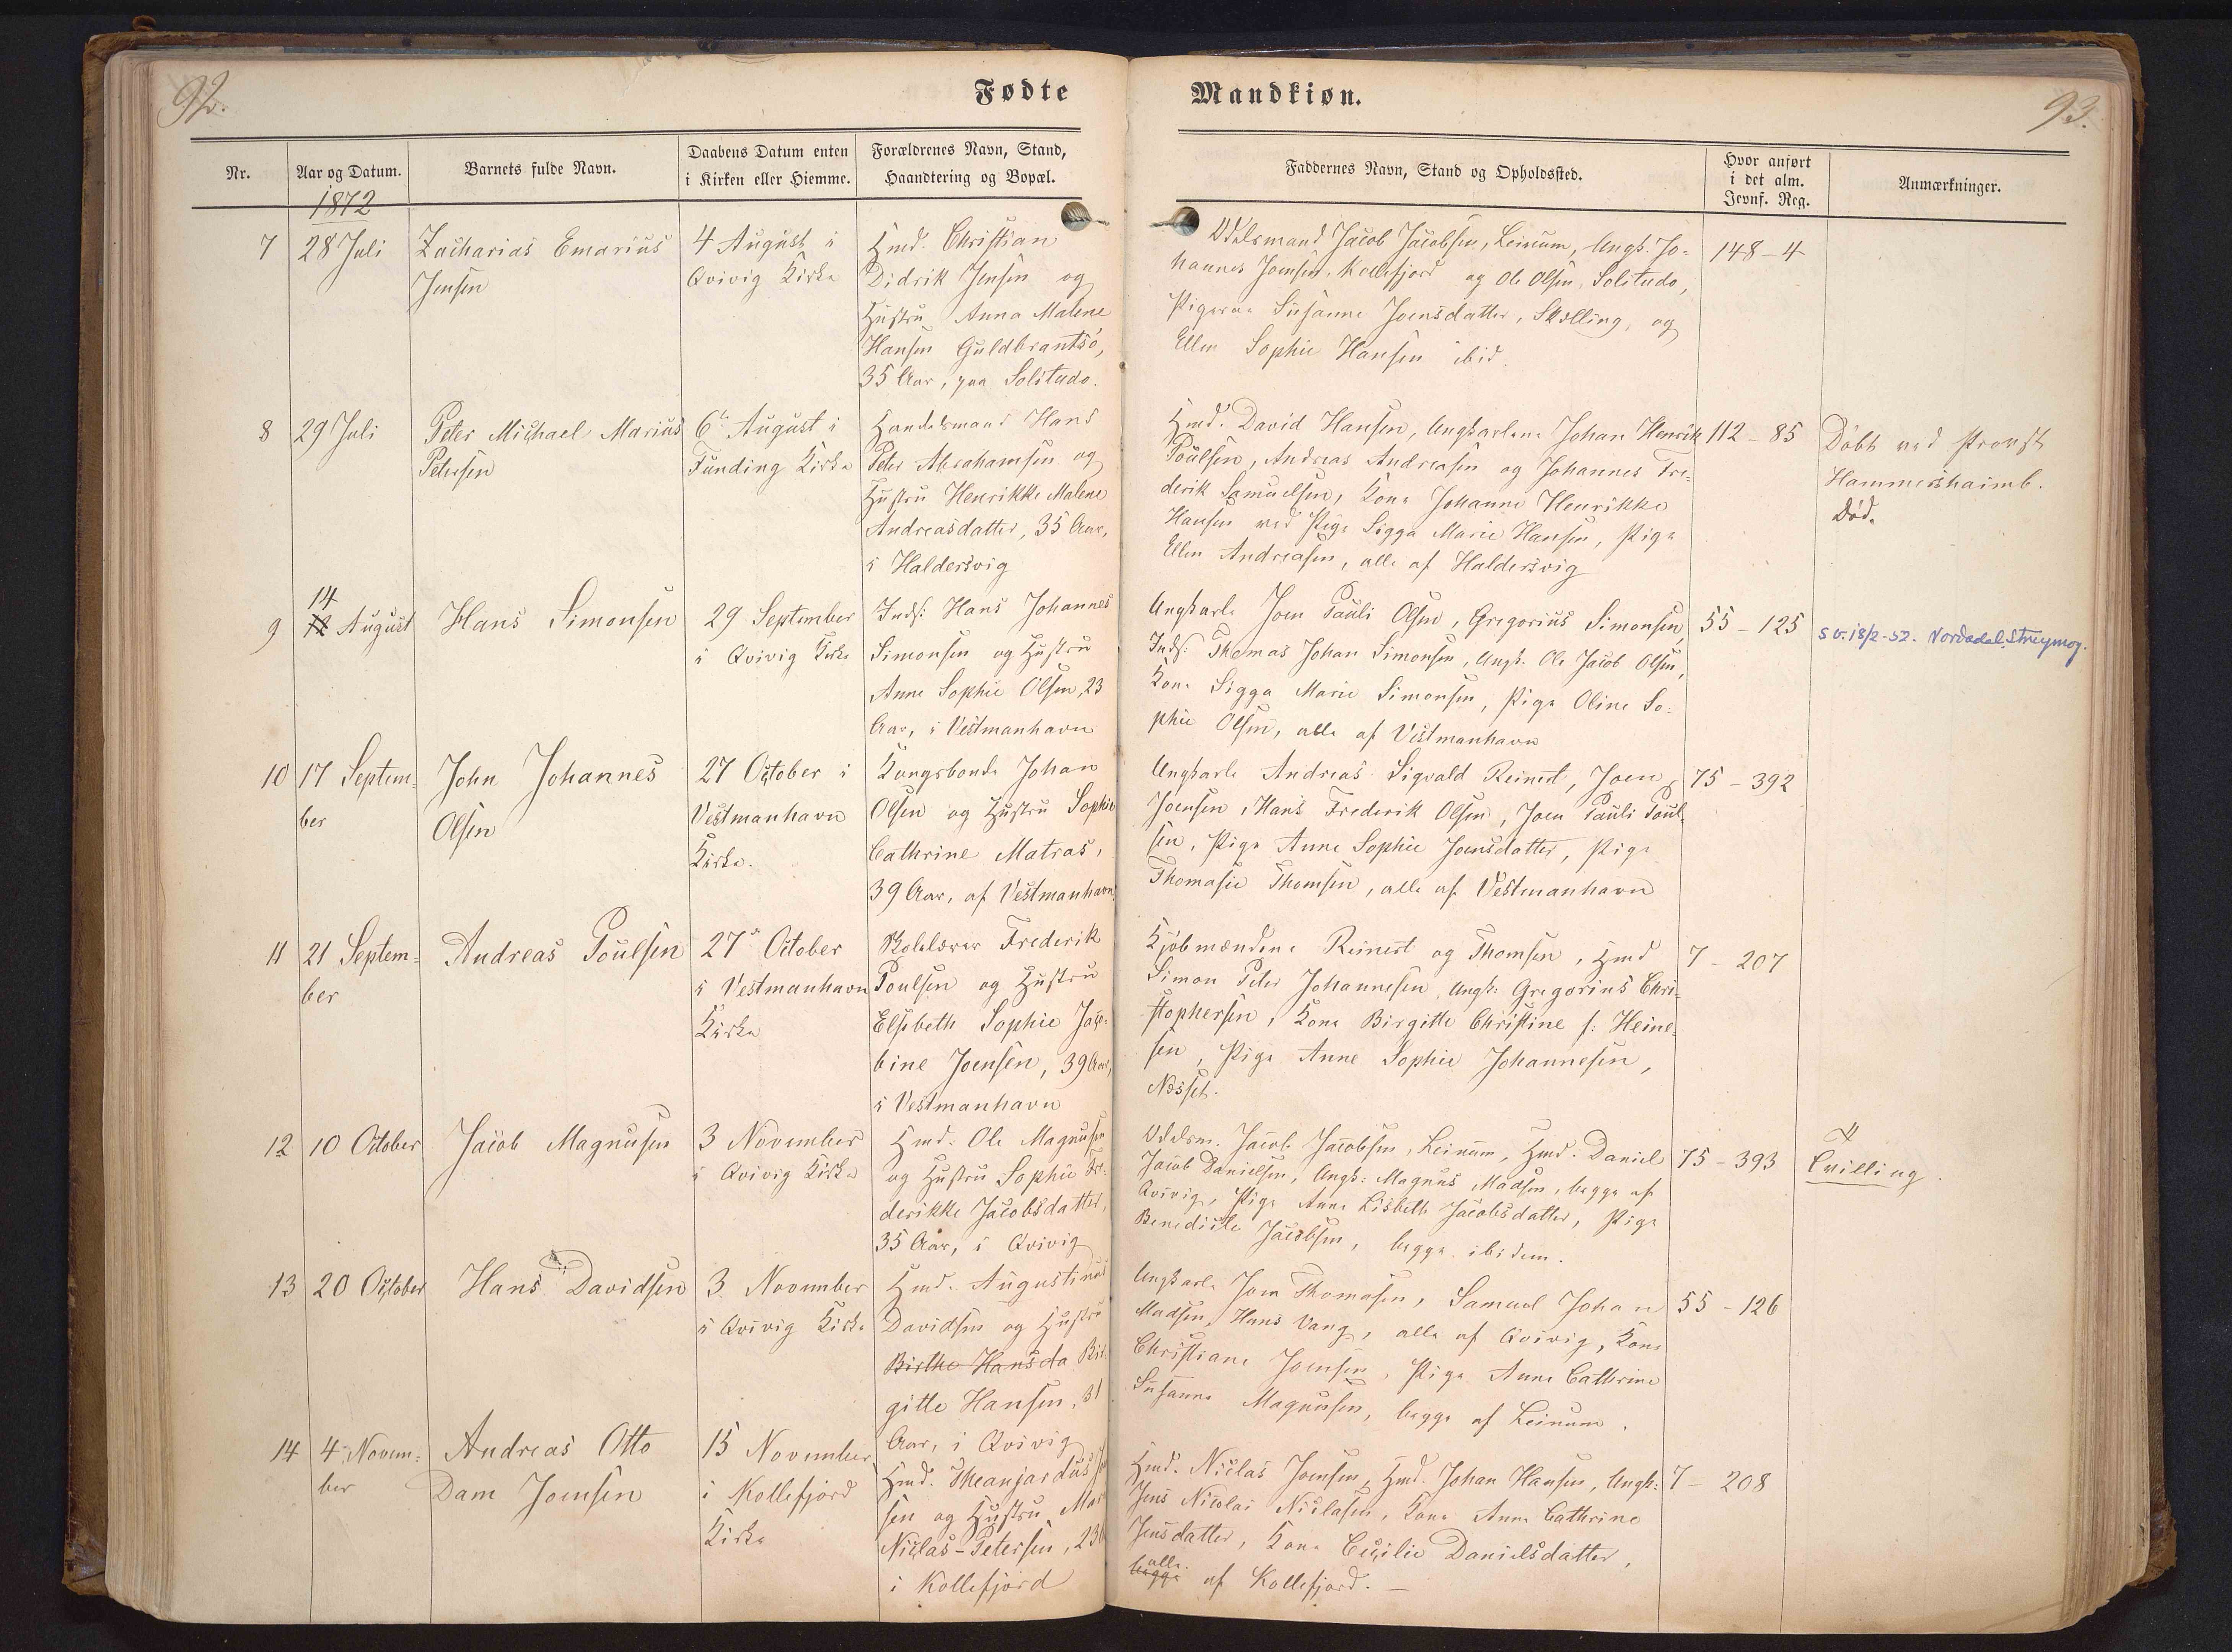 92.
Fødte
Nr.
Aar og Datum.
Barnets fulde Navn.
Daabens Datum enten
i Kirken eller Hiemme.
Forældrenes Navn, Stand,
Haandtering og Bopæl.
1872
7
28 Juli
Zacharias Emarius
Jensen
4 August i
Qvivig Kirke
Hmd. Christian
Didrik Jensen og
Hustru Anna Malene
Hansen Guldbrantsó,
35 Aar, paa Solitude.
8
29 Juli
Peter Michael Marius
Petersen
6te August i
Funding Kirke
Handelsmand Hans
Peter Abrahamsen og
Hustru Henrikke Malene
Andreasdatter, 35 Aar,
i Haldersvig
9
14
12 August
Hans Simonsen
29 September
i Qvivig Kirke
Inds: Hans Johannes
Simonsen og Hustru
Anne Sophie Olsen, 23
Aar, i Vestmanhavn
10
17 Septem-
ber
John Johannes
Olsen
27 October i
Vestmanhavn
Kirke.
Kongsbonde Johan
Olsen og Hustru Sophie
Cathrine Matras,
39 Aar, af Vestmanhavn
11
21 Septem=
ber
Andreas Poulsen
27 October
i Vestmanhavn
Kirke
Skolelærer Frederik
Poulsen og Hustru
Elsebeth Sophie Jaco-
bine Joensen, 39 Aar,
i Vestmanhavn
12
10 October
Jacob Magnusen
3 November
i Qvivig Kirke
Hmd. Ole Magnusen
og Hustru Sophie Fre-
derikke Jacobsdatter,
35 Aar, i Qvivig
13
20 October
Hans Davidsen
3 November
i Qvivig Kirke
Hmd. Augustinus
Davidsen og Hustru
Birthe Hansda Bir-
gitte Hansen, 31
Aar, i Qvivig
14
4 Novem-
ber
Andreas Otto
Dam Joensen
15 November
i Kollefjord
Kirke
Hmd. Meanjardus
sen og Hustru
Niclas-Petersen, 23
i Kollefjord
Mandkiøn.
93.
Faddernes Navn, Stand og Opholdssted.
Hvor anført
i det alm.
Jevnf. Reg.
Anmærkninger.
Odelsmand Jacob Jacobsen, Leinum, Ungk. Jo-
hannes Joensen, Kollefjord og Ole Olsen, Solitude,
Pigerne Susanne Joensdatter, Skælling, og
Ellen Sophie Hansen ibid.
148-4
Hmd. David Hansen, Ungkarlene Johan Henrik
Poulsen, Andreas Andreasen og Johannes Fre-
derik Samuelsen, Kone Johanne Henrikke
Hansen ved Pige Sigga Marie Hansen, Pige
Ellen Andreasen, alle af Haldersvig
112-85
Døbt ved Provst
Hammershaimb.
Død.
Ungkarle Joen Pauli Olsen, Gregorius Simonsen,
Inds: Thomas Johan Simonsen, Ungk. Ole Jacob Olsen,
Kone Sigga Marie Simonsen, Pige Oline So-
phie Olsen, alle af Vestmanhavn
55-125
s v. 18/2-52. Nordadal. Streymoy.
Ungkarle Andreas Sigvald Reinert, Joen
Joensen, Hans Frederik Olsen, Joen Pauli Poul-
sen, Pige Anne Sophie Joensdatter, Pige
Thomasie Thomsen, alle af Vestmanhavn
75-392
Kjøbmændene Reinert og Thomsen, Hmd
Simon Peter Johannesen, Ungk: Gregorius Chri-
stophersen, Kone Birgitte Christine f: Heine-
sen, Pige Anne Sophie Johannesen,
Næsset.
7-207
Odelsm. Jacob Jacobsen, Leinum, Hmd. Daniel
Jacob Danielsen, Ungk: Magnus Madsen, begge af
Qvivig, Pige Anne Lisbeth Jacobsdatter, Pige
Benedicte Jacobsen, begge ibidem.
75-393
Tvilling
Ungkarle Joen Thomasen, Samuel Johan
Madsen, Hans Vang, alle af Qvivig, Kone
Christiane Joensen, Pige Anne Cathrine
Susanne Magnusen, begge af Leinum.
55-126
Hmd. Niclas Joensen, Hmd. Johan Hansen, Ungk:
Jens Nicolai Niclasen, Kone Anne Cathrine
Jensdatter, Kone Cecilie Danielsdatter,
alle
begge af Kollefjord.-
7-208